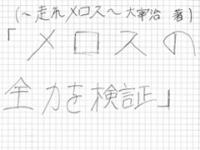 (~走れメロス~ 太宰治 著)
「メロスの
全力を検証」